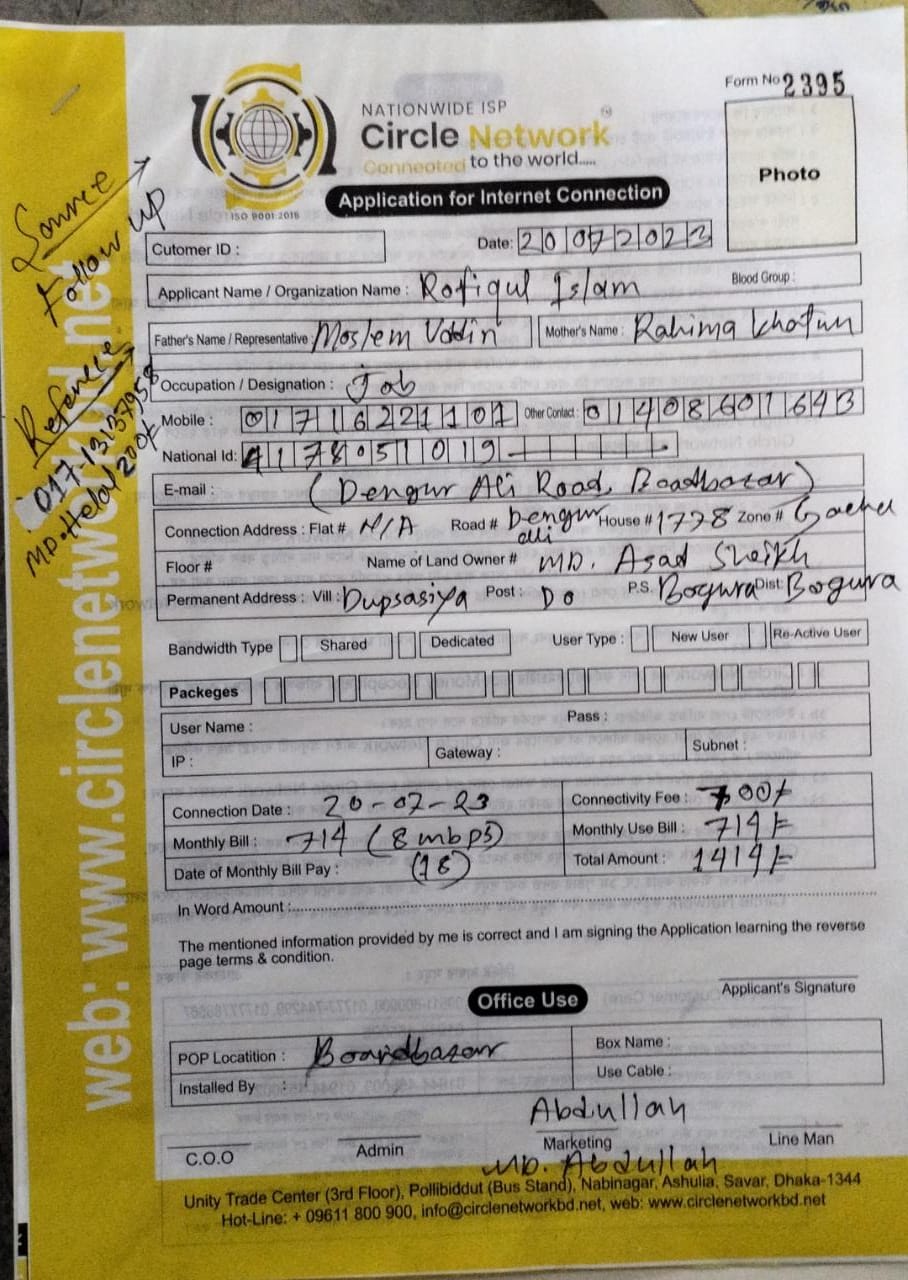 Form No 2395
NATIONWIDE ISP
Circle Network
Connected to the world.....
ISO 9001:2015
Application for Internet Connection
Photo
Source
Follow up
Refence
MD. Helal 200/
web: www.circlenetworkbd.net
Cutomer ID :
Date: 20072023
Applicant Name / Organization Name : Rofiqul Islam Blood Group :
Father's Name / Representative : Moslem Uddin Mother's Name : Rahima Khatun
Occupation / Designation : Job
Mobile : 01716221101 Other Contact : 01408601643
National Id: 4178051019
E-mail : (Dengur Ali Road, Boadbazar)
Connection Address : Flat # N/A Road # Dengur Ali House # 1778 Zone #
Floor # Name of Land Owner # MD. Asad Sheikh
Permanent Address : Vill : Dupsasiya Post : Do P.S. Bogura Dist: Bogura
Bandwidth Type Shared Dedicated User Type : New User Re-Active User
Packeges
User Name : Pass :
IP : Gateway : Subnet :
Connection Date : 20-07-23 Connectivity Fee : 700/
Monthly Bill : 714 (8 mbps) Monthly Use Bill : 714/=
Date of Monthly Bill Pay : (18) Total Amount : 1414/=
In Word Amount :
The mentioned information provided by me is correct and I am signing the Application learning the reverse
page terms & condition.
Applicant's Signature
Office Use
POP Locatition : Boardbazar Box Name :
Installed By : Use Cable :
Abdullah
C.O.O Admin Marketing Line Man
MD. Abdullah
Unity Trade Center (3rd Floor), Pollibiddut (Bus Stand), Nabinagar, Ashulia, Savar, Dhaka-1344
Hot-Line: + 09611 800 900, info@circlenetworkbd.net, web: www.circlenetworkbd.net